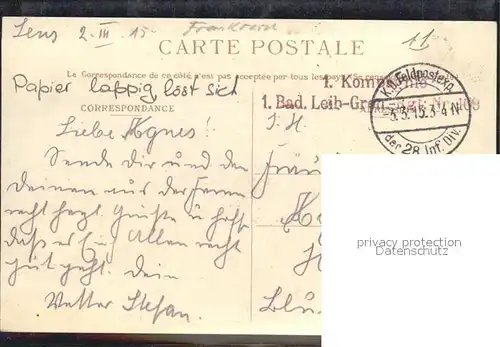 Lens 2. III. 15. Frankreich
11
CARTE POSTALE
La Correspondance de ce côté n'est pas acceptée par tous les pays (Se renseigner
Papier lappig löst sich
1. Kompagnie
1. Bad. Leib-Gren.-Rgt. Nr. 109
CORRESPONDANCE
K.D. Feldpostexp.
-3.3.15. 3-4 N
der 28. Inf. Div.
S. H.
Liebe Agnes!
Sende dir und den
Deinen aus der Ferne
recht herzl. Grüße u. hoffe
daß es Euch Allen recht
gut geht. Dein
Vetter Stefan.
Fräul
Blu
privacy protection
Datenschutz